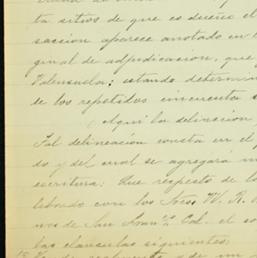 ta sitios de que es dueño el
saccion aparece anotado en
ginal de adjudicacion, que
Valensuela; estando determin
de los repetidos cincuenta s
(Aqui la delineacion
Tal delineacion consta en el p
do y del cual se agregará
escritura: Que respecto de l
lebrado con los Sres. W. R.
nos de San Fran.co Cal. el so
las clausulas siguientes: